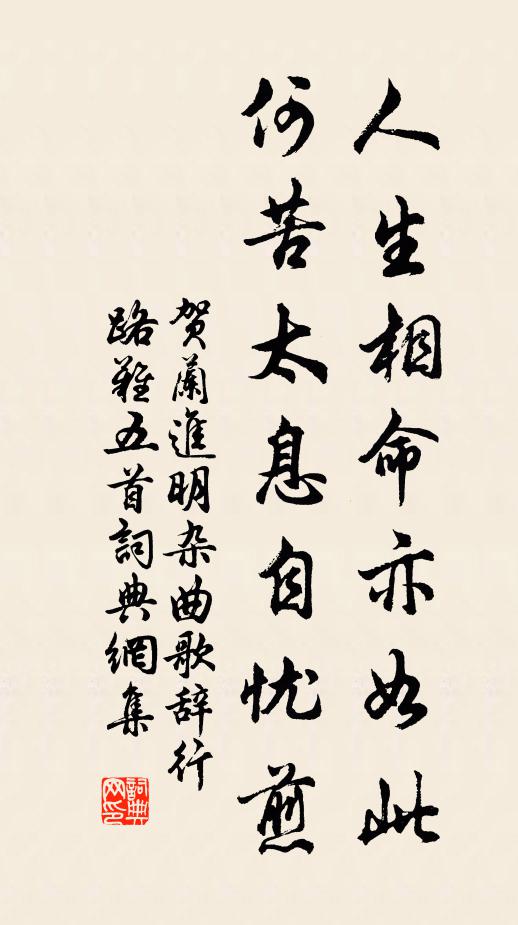 人生相命亦如此
何苦太息自忧煎
贺蘭進明杂曲歌辞行
路難五首詞典網集
詞典
网印